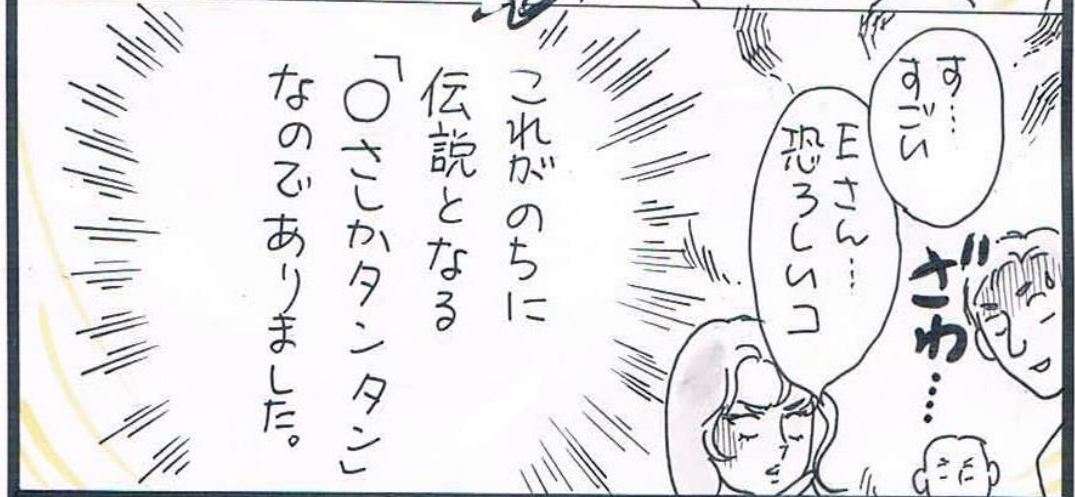 す…
すごい
Eさん…
恐ろしいコ
ざわ…
これがのちに
伝説となる
「〇さしかタンタン」
なのでありました。